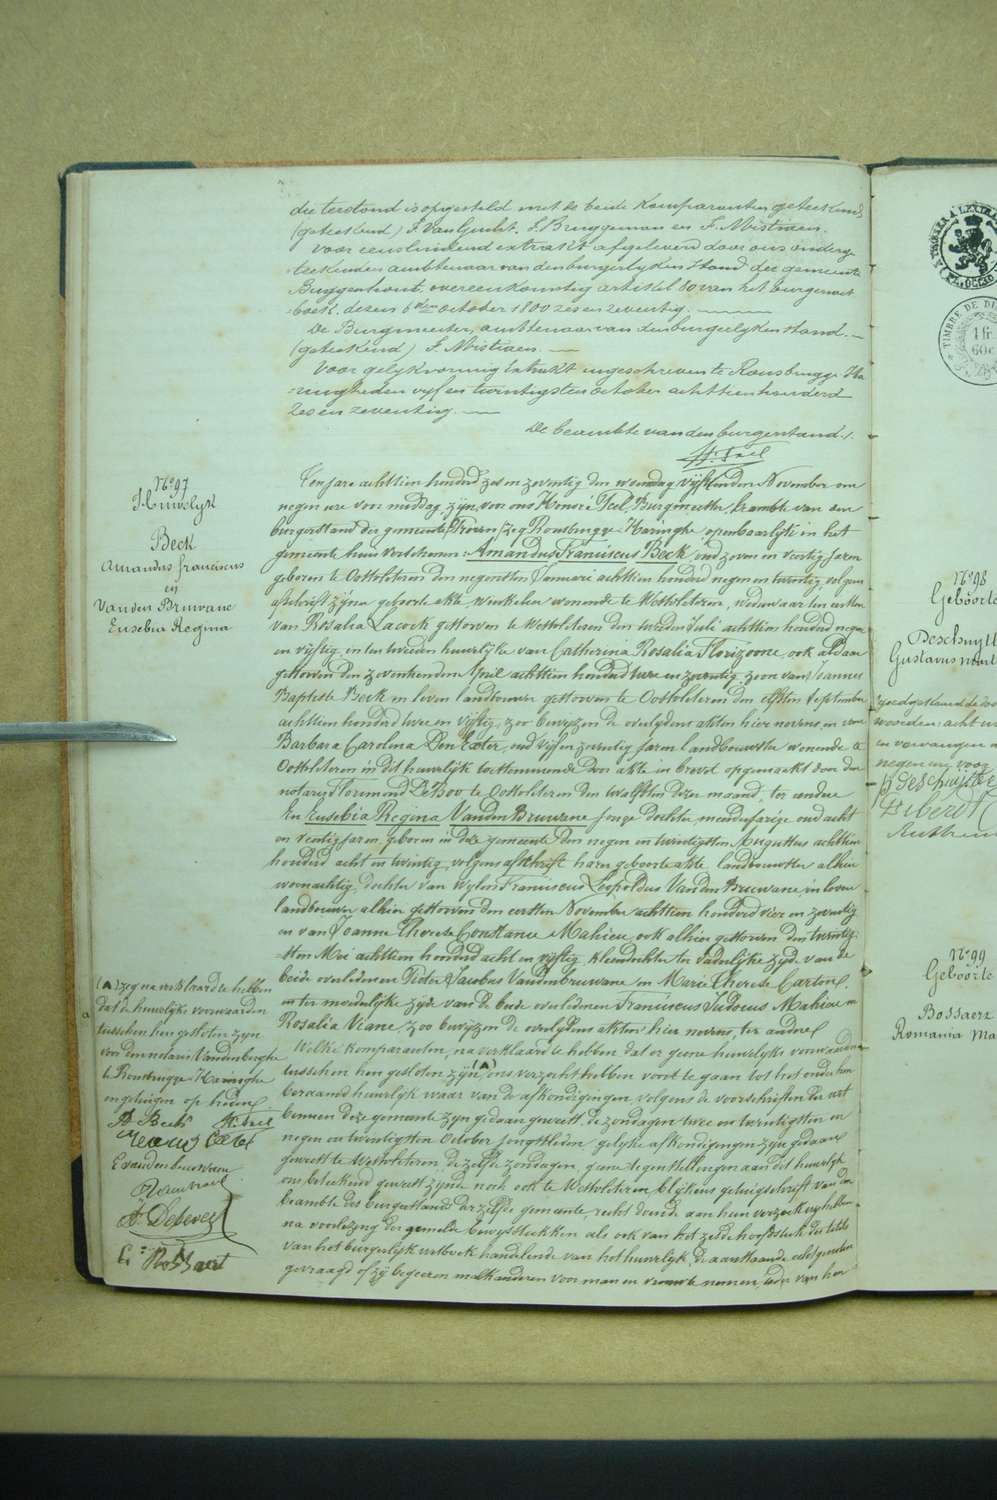 die terstond is opgesteld met de beide komparanten geteekend
(geteekend) J. Van Gucht, S. Bruggeman en F. Mistiaen.
Voor eensluidend extrakt afgeleverd door ons onderge
teekenden ambtenaar van den burgerlyken stand der gemeente
Buggenhout, overeenkomstig artikel 80 van het burgerwet
boek. dezen 6den october 1800 zes en zeventig.
De Burgmeester, ambtenaar van den burgerlyken stand.
(geteekend) F. Mistiaen.
Voor gelykvormig extrakt ingeschreven te Rousbrugge-Ha
ringhe den vyf en twintigsten october achttien honderd
zes en zeventig.
De beambte van den burgerstand.
H. Feel
No 97
Huwelyk
Beck
Amandus franciscus
en
Vanden Bruwane
Eusebia Regina
Ten jare achttien honderd zes en zeventig den woensdag vyftienden November om
negen ure voor middag, zyn voor ons Honoré Feel, Burgmeester, beambte van den
burgerstand der gemeente Rousbrugge-Haringhe openbaarlijk in het
gemeente huis verschenen: Amandus Franciscus Beck, oud zeven en veertig jaren
geboren te Oostvleteren den negensten Januari achttien honderd negen en twintig, volgens
afschrift zyner geboorte akte, winkelier wonende te Westvleteren, weduwaar ten eersten
van Rosalia Lacock gestorven te Westvleteren den tweeden Juli achttien honderd negen
en vyftig, in ten tweeden huwelijke van Catherina Rosalia Florizoone, ook aldaar
gestorven den zeventienden April achttien honderd twee en zeventig, zoon van Joannes
Baptiste Beck in leven landbouwer gestorven te Oostvleteren den elfsten September
achttien honderd twee en vyftig, zoo bewyzen de overlydens akten hier nevens, en van
Barbara Carolina Den Exter, oud vyf en zeventig jaren landbouwster wonende te
Oostvleteren in dit huwelijk toestemmende door akte in brevet opgemaakt door den
notaris Florimond De Boo te Oostvleteren den twaalfsten dezer maand, ter andere
En Eusebia Regina Vanden Bruwane jonge dochter, meerderjarige oud acht
en veertig jaren, geboren in deze gemeente den negen en twintigsten Augustus achttien
honderd acht en twintig, volgens afschrift harer geboorte akte, landbouwster alhier
woonachtig, dochter van wylen Franciscus Leopoldus Vanden Bruwane, in leven
landbouwer alhier gestorven den eersten November achttien honderd vier en zeventig
en van Joanna Therese Constance Mahieu, ook alhier gestorven den twintig
sten Mei achttien honderd acht en vyftig, kleindochter ter vaderlijke zyde van de
beide overledenen Pieter Jacobus Vandenbruwane en Marie Therese Carton,
en ter moederlijke zyde van de beide overledenen Franciscus Judocus Mahieu en
Rosalia Viane, zoo bewyzen de overlydens akten hier nevens, ter andere
Welke komparanten, na verklaard te hebben dat er geene huwelijks voorwaarden
tusschen hen gesloten zyn (A) ons verzocht hebben voort te gaan tot het onder hen
beraamd huwelijk waar van de afkondigingen volgens de voorschriften der wet
binnen deze gemeente zyn gedaan geweest, de zondagen twee en twintigsten en
negen en twintigsten October jongstleden, gelyke afkondigingen zyn gedaan
geweest te Westvleteren de zelfde zondagen, geene tegenstellingen aan dit huwelijk
ons bekend geweest zynde noch ook te Westvleteren blykens getuigschrift van den
beambte des burgerstands der zelfde gemeente, recht doende aan hun verzoek wy hebben
na voorlezing der gemelde bewysstukken als ook van het zesde hoofdstuk des titels
van het burgerlijk wetboek handelende van het huwelijk, de aanstaande echtgenoten
gevraagd of zy begeeren malkanderen voor man en vrouw te nemen, ieder van hen
(A) zeg na verklaard te hebben
dat de huwelijks voorwaarden
tusschen hen gesloten zyn
voor den notaris Vandenberghe
te Rousbrugge-Haringhe
en gekregen op heden
A Beck H. Feel
E vandenbruwaene
A. Desever
C: Bossaert
No 98
Geboorte
Deschuyt
Gustavus
No 99
Geboorte
Bossaert
Romania Ma
TIMBRE DE DI
1 fr
60c